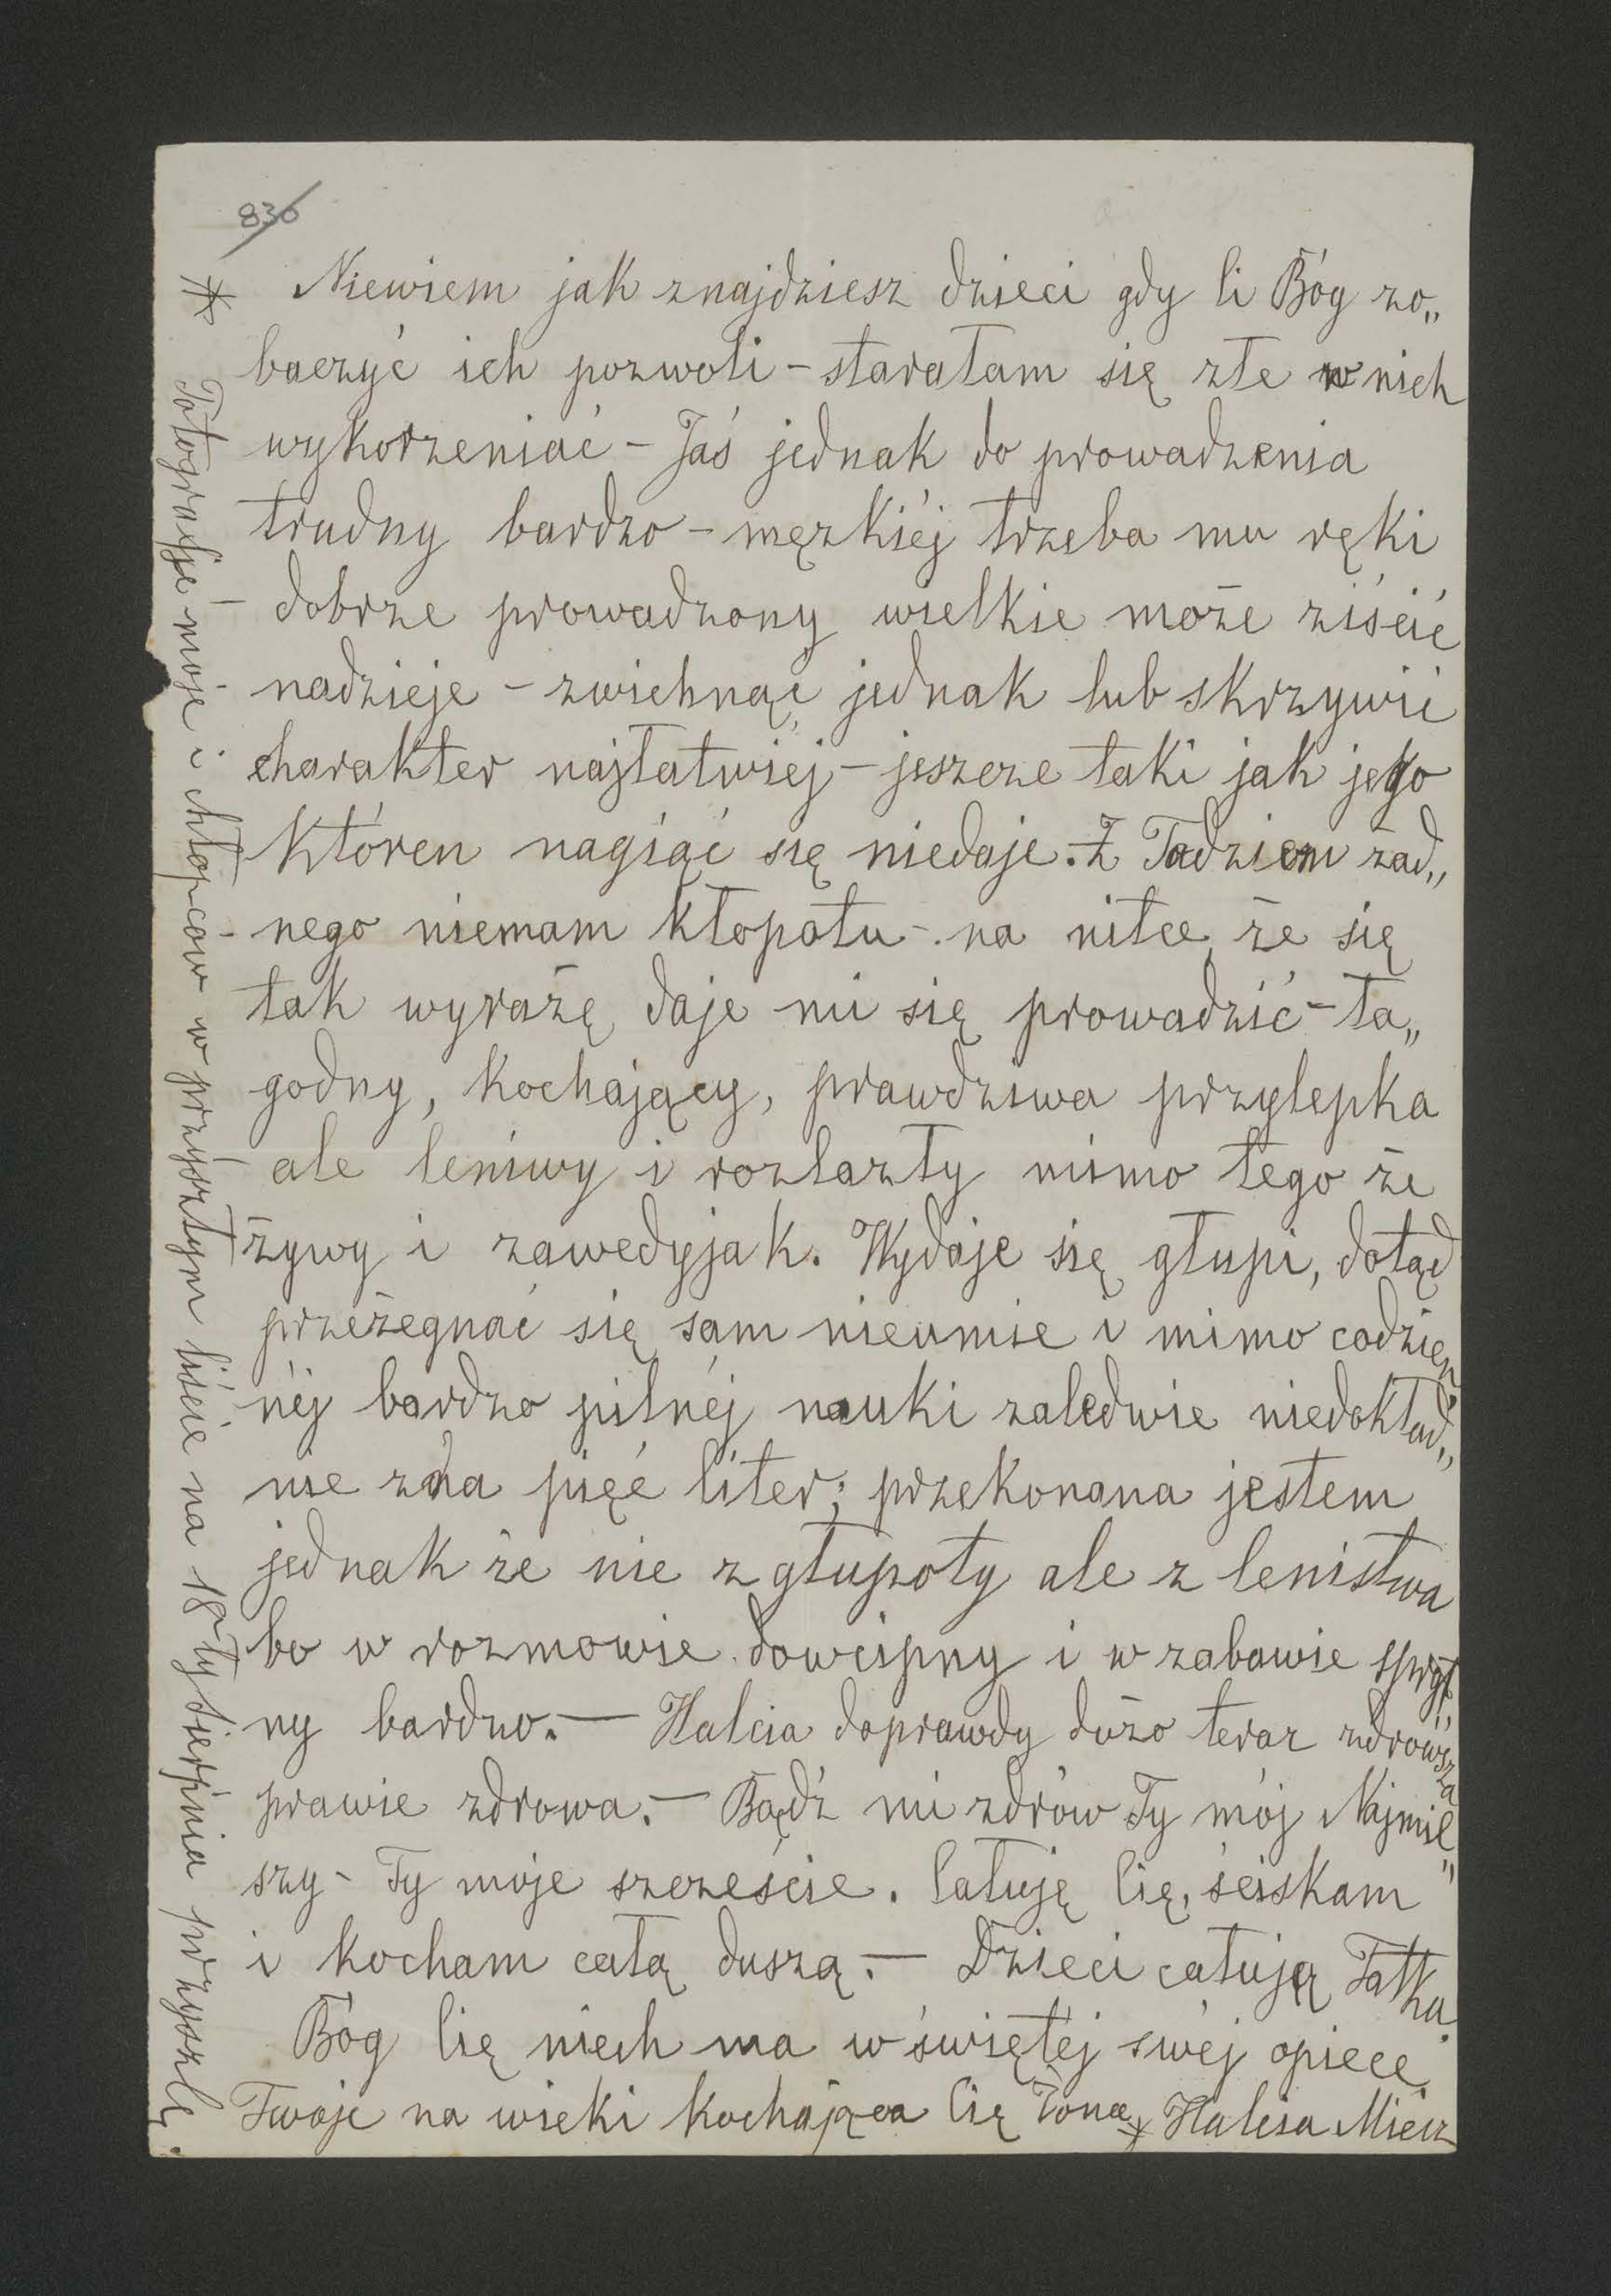 836
Niewiem jak znajdziesz dzieci gdy Ci Bóg zo„
baczyć ich pozwoli - starałam się złe w nich
wykorzeniać - Jaś jednak do prowadzenia
trudny bardzo - męzkiéj trzeba mu ręki
- dobrze prowadzony wielkie może ziścić
nadzieje - zwichnąć jednak lub skrzywić
charakter najłatwiéj - jeszcze taki jak jego
któren nagiąć się niedaje. Z Tadziem żad„
nego niemam kłopotu - na nitce, że się
tak wyrażę, daje mi się prowadzić - ła„
godny, kochający, prawdziwa przylepka
ale leniwy i rozlazły mimo tego że
żywy i zawedyjak. Wydaje się głupi, dotąd
przeżegnać się sam nieumie i mimo codzien„
néj bardzo pilnéj nauki zaledwie niedokład„
nie zna pięć liter; przekonana jestem
jednak że nie z głupoty ale z lenistwa
bo w rozmowie dowcipny i w zabawie spryt„
ny bardzo. — Halcia doprawdy dużo teraz zdrowsza
prawie zdrowa. — Bądź mi zdrów Ty mój Najmil„
szy - Ty moje szczeście. Całuję Cię, ściskam
i kocham całą duszą. — Dzieci całują Tatka.
Bóg Cię niech ma w świętéj swéj opiece
Twoje na wieki kochająca Cię Żona Halcia Miecz
* Fotografje moje i chłopców w przyszłym liście na 18ty Sierpnia przyszlę.